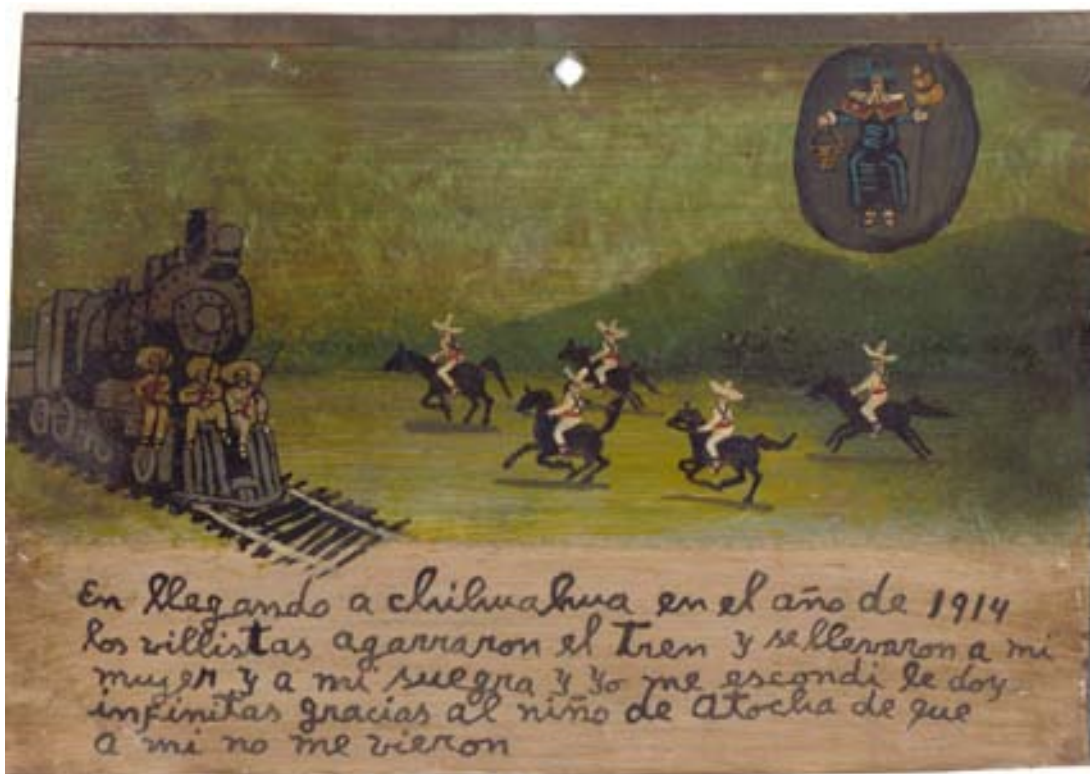 En llegando a chihuahua en el año de 1914
los villistas agarraron el Tren y se llevaron a mi
mujer y a mi suegra y yo me escondi le doy
infinitas gracias al niño de Atocha de que
a mi no me vieron